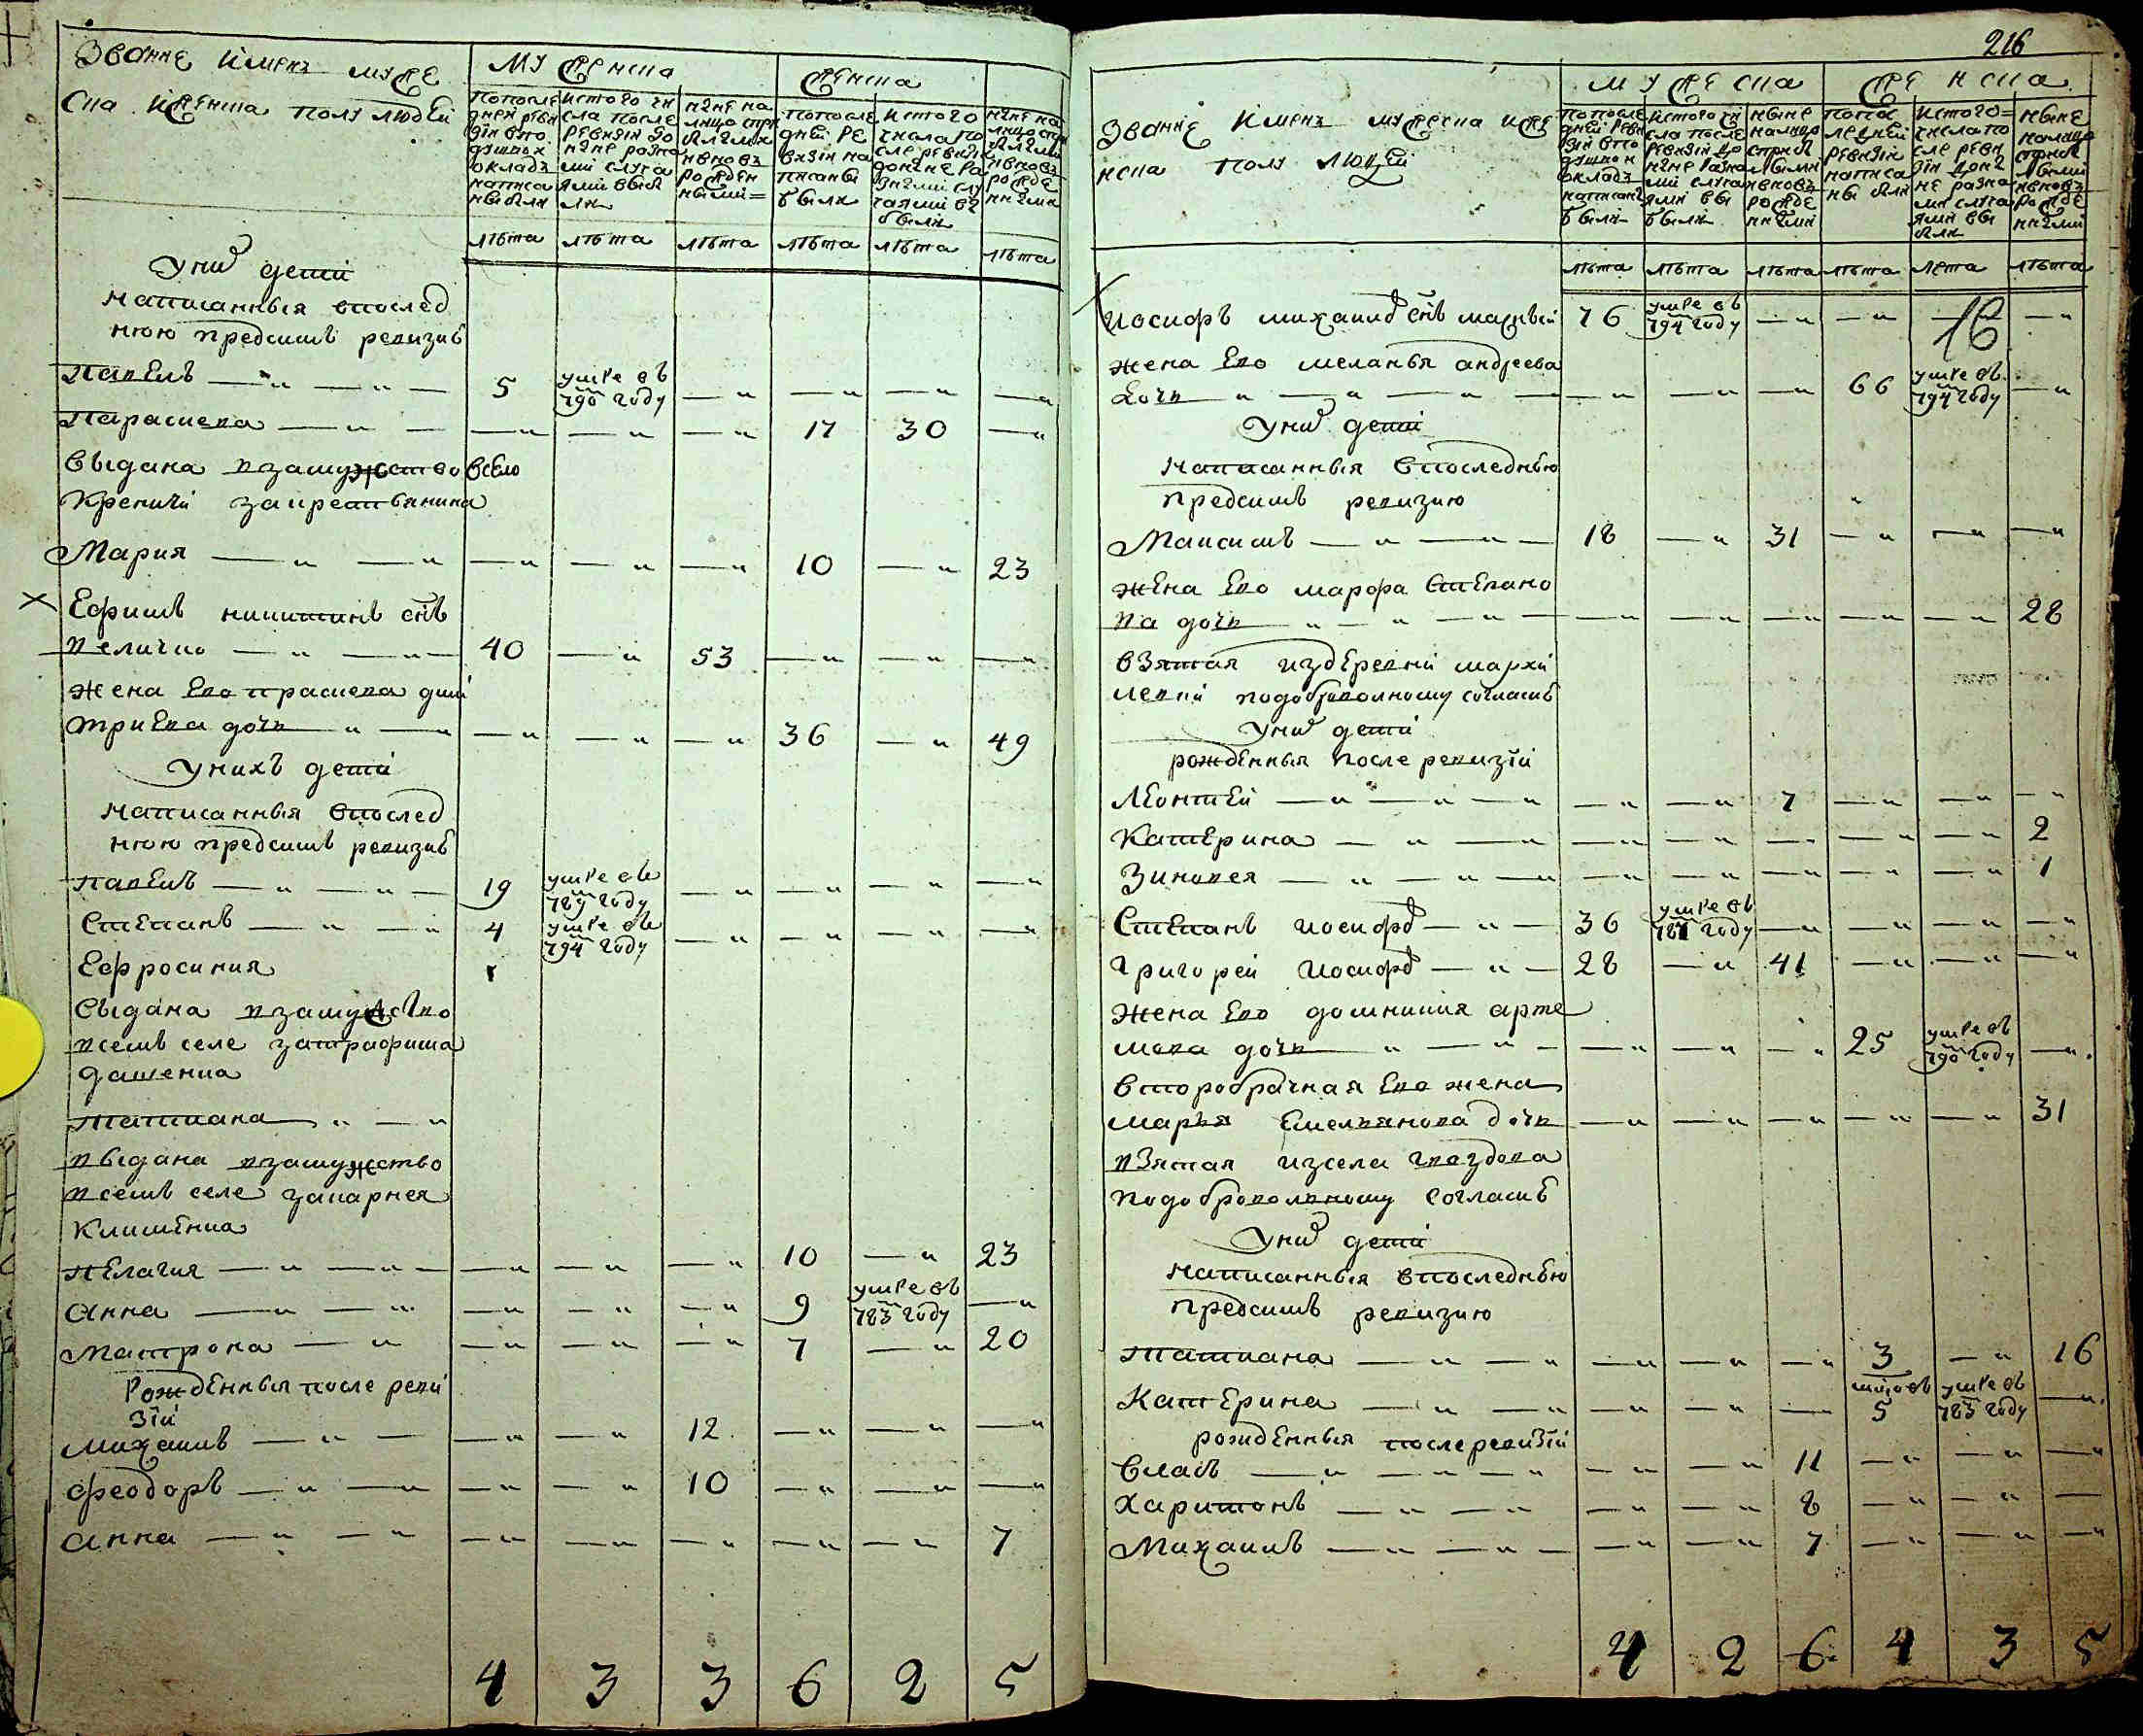 Званіе имянъ муже
ска и женска полу людей
мужеска
женска
попосле
дней реви
зіи вто
душной
окладъ
написа
ны были
истого чи
сла после
ревизіи до
ныне разны
ми случа
ями выбы
ли
ныне на
лицо стри
былыми
ивновъ
рожден
ными
попосле
дней ре
визіи на
писаны
были
истого
числа по
сле ревизіи
доныне ра
зными слу
чаями вы
были
ныне на
лицо стри
былыми
ивновъ
рожде
нными
лѣта лѣта лѣта лѣта лѣта лѣта
У них дети
написанныя впослед
нюю предсимъ ревизию
Павелъ 5 умре въ 790 году
Параскева 17 30
выдана взамужство в село
за крестьянина
Мария 10 23
Ефимъ никитинъ снъ
величко 40 53
жена ево праскева дми
триева дочь 36 49
У нихъ дети
написанныя впослед
нюю предсимъ ревизию
Павелъ 19 умре въ 789 году
Степанъ 4 умре въ 794 году
Ефросиния
выдана взамужство
всемъ селе за трофима
дашенка
Татиана
выдана взамужство
всемъ селе за карнея
клименка
Пелагия 10 23
Анна 9 умре въ 783 году
Матрона 7 20
Рожденныя после реви
зіи
Михаилъ 12
Феодоръ 10
Анна 7
4 3 3 6 2 5
216
Званіе имянъ мужеска и же
нска полу людей
мужеска
женска
попосле
дней реви
зіи вто
душной
окладъ
написаны
были
истого чи
сла после
ревизіи до
ныне разны
ми случа
ями вы
были
ныне
налицо
стриб
лыми
ивновъ
рожде
нными
попос
ледней
ревизіи
написа
ны были
истого
числа по
сле реви
зіи доны
не разны
ми случа
ями вы
были
ныне
налицо
стриб
лыми
ивновъ
рожде
нными
лѣта лѣта лѣта лѣта лета лѣта
16
Иосифъ михаилов снъ малый 76 умре въ 794 году
жена ево меланья андреева
дочь 66 умре въ 794 году
У них дети
написанныя впоследнюю
предсимъ ревизию
Максимъ 18 31
жена ево марфа степано
ва дочь 28
взятая издеревни
подобровольному согласию
У них дети
рожденныя после ревизіи
Леонтей 7
Катерина 2
Зиновея 1
Степанъ иосифов 36 умре въ 787 году
Григорей иосифов 28 41
жена ево домникия арте
мова дочь 25 умре въ 790 году
второбрачная ево жена
марья емельянова дочь 31
взятая изсела гвоздова
подобровольному согласию
У них дети
написанныя впоследнюю
предсимъ ревизию
Татиана 3 16
Катерина 5 умре въ 783 году
рожденныя послеревизіи
Власъ 11
Харитонъ 8
Михаилъ 7
4 2 6 4 3 5